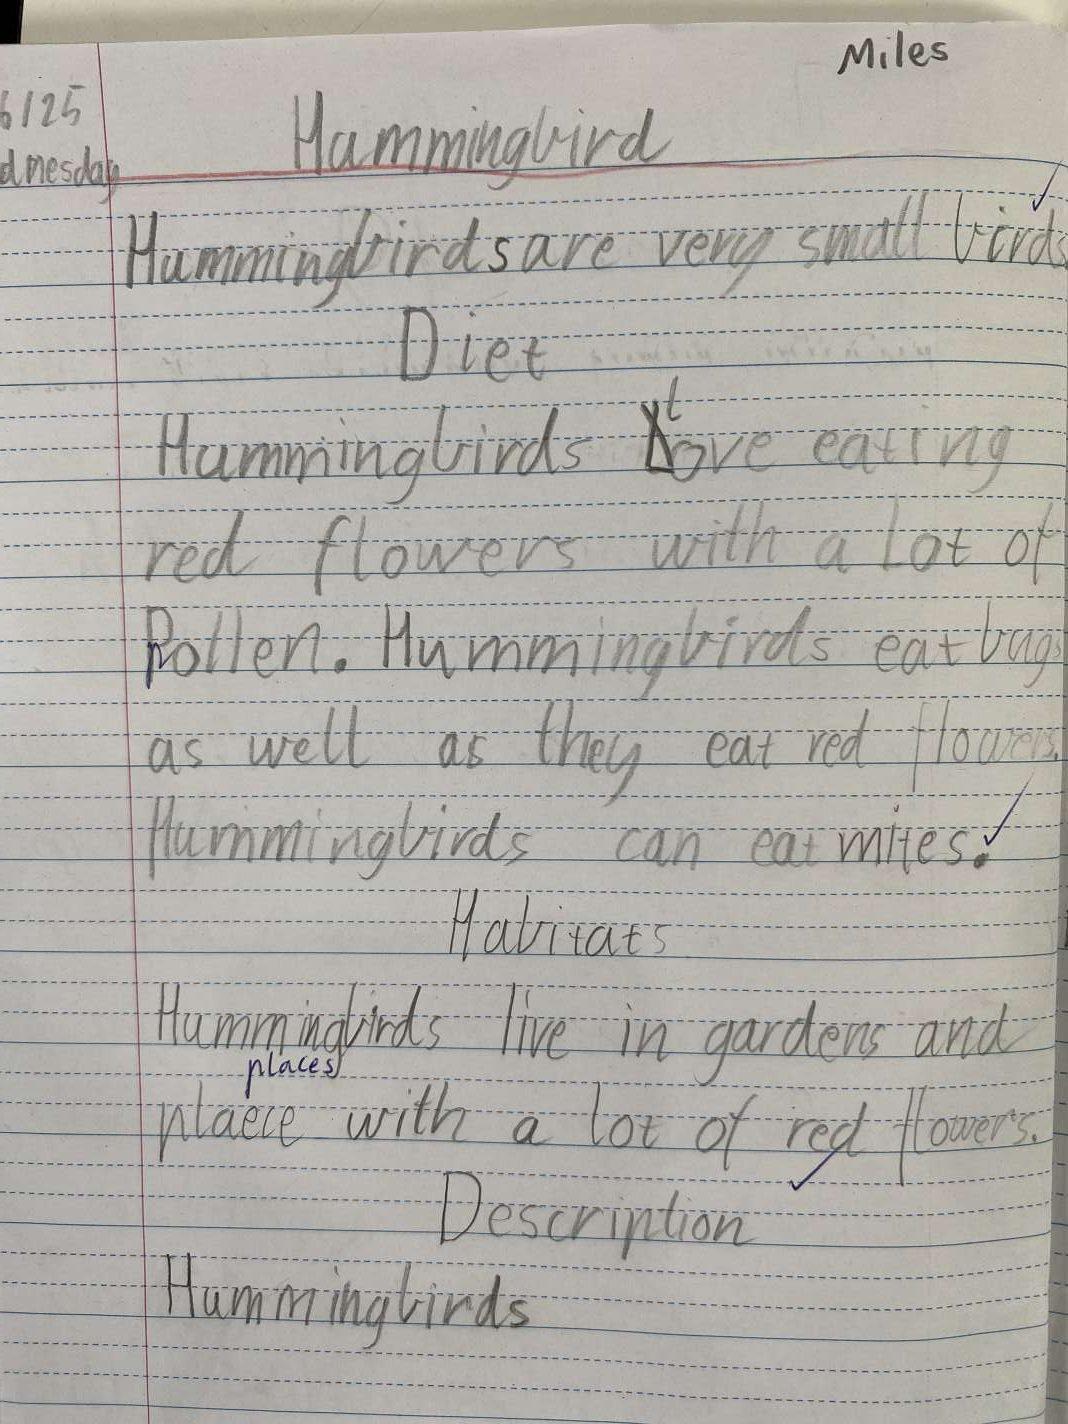 Miles
6/25
Hummingbird
dnesday
Hummingbirds are very small birds
Diet
Hummingbirds love eating
red flowers with a lot of
Pollen. Hummingbirds eat bugs
as well as they eat red flowers.
Hummingbirds can eat mites.
Habitats
Hummingbirds live in gardens and
places
plaece with a lot of red flowers.
Description
Hummingbirds